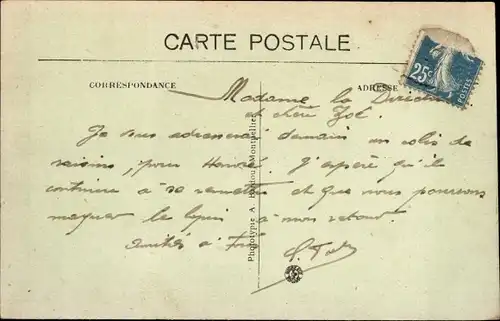 CARTE POSTALE
CORRESPONDANCE
ADRESSE
25c
POSTES
Madame la Directrice
et chère
Je vous adresserai demain un colis de
raisins, pour Hervé. J'espère qu'il
continue à se remettre et que nous pourrons
manger le lapin à mon retour.
Amitiés à
Phototypie A Bardou Montpellier